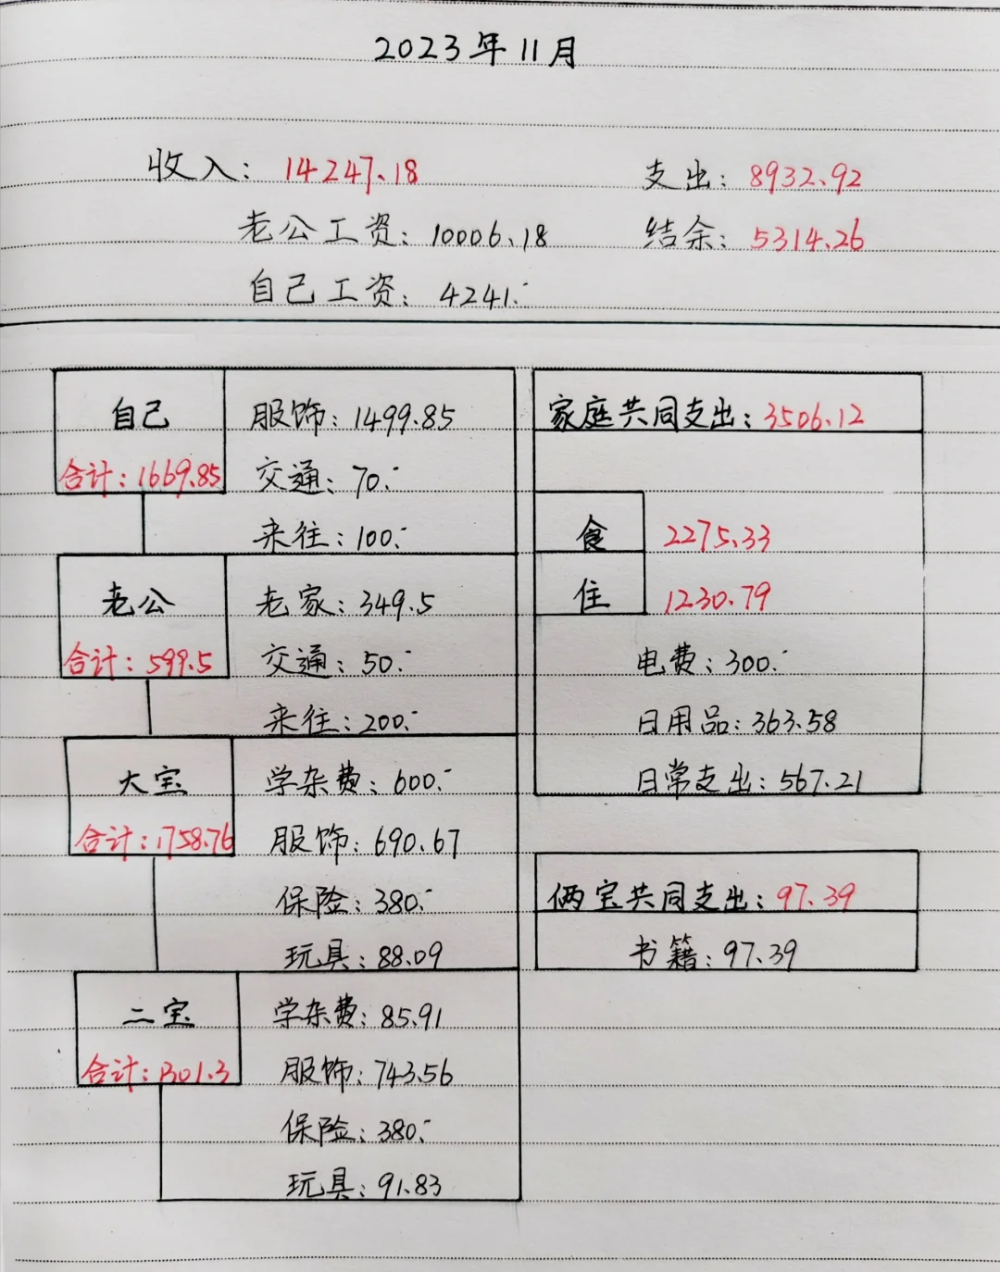 2023年11月
收入：14247.18
老公工资：10006.18
自己工资：4241.-
支出：8932.92
结余：5314.26
自己
合计：1669.85
服饰：1499.85
交通：70.-
来往：100.-
老公
合计：599.5
老家：349.5
交通：50.-
来往：200.-
大宝
合计：1758.76
学杂费：600.-
服饰：690.67
保险：380.-
玩具：88.09
二宝
合计：1301.3
学杂费：85.91
服饰：743.56
保险：380.-
玩具：91.83
家庭共同支出：3506.12
食 2275.33
住 1230.79
电费：300.-
日用品：363.58
日常支出：567.21
俩宝共同支出：97.39
书籍：97.39